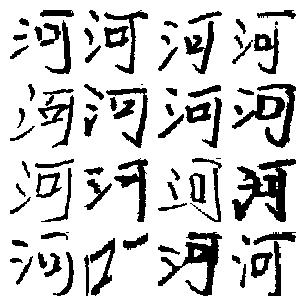 河河河河
河河河河
河河河河
河河河